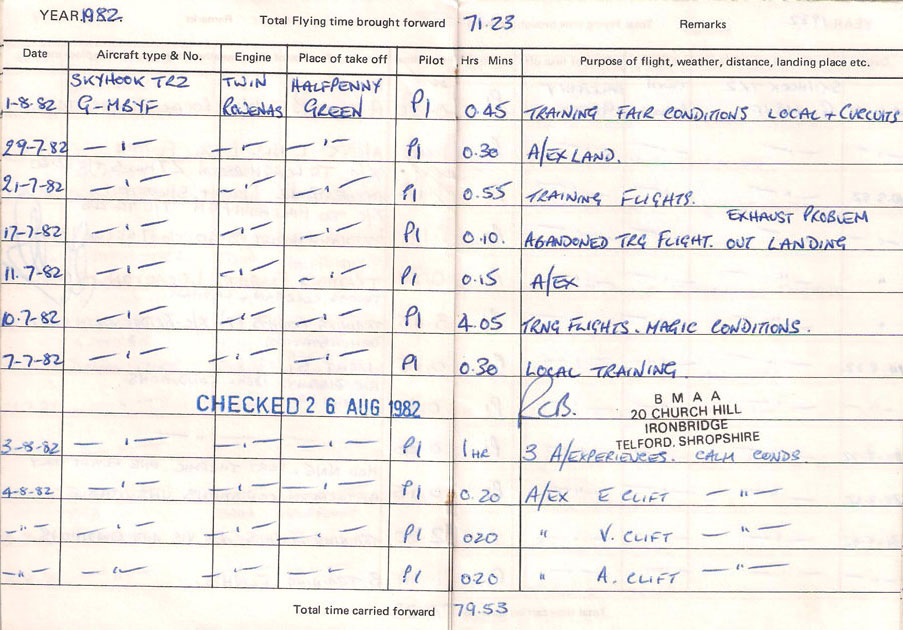 YEAR 1982. Total Flying time brought forward 71.23 Remarks
Date Aircraft type & No. Engine Place of take off Pilot Hrs Mins Purpose of flight, weather, distance, landing place etc.
SKYHOOK TR2 TWIN HALFPENNY
1-8-82 G-MBYF ROWENAS GREEN P1 0.45 TRAINING FAIR CONDITIONS LOCAL + CURCUITS
29-7-82 — " — — " — — " — P1 0.30 A/EX LAND.
21-7-82 — " — — " — — " — P1 0.55 TRAINING FLIGHTS.
EXHAUST PROBLEM
17-7-82 — " — — " — — " — P1 0.10. ABANDONED TRG FLIGHT. OUT LANDING
11.7-82 — " — — " — — " — P1 0.15 A/EX
10.7-82 — " — — " — — " — P1 4.05 TRNG FLIGHTS. MAGIC CONDITIONS.
7-7-82 — " — — " — — " — P1 0.30 LOCAL TRAINING.
CHECKED 26 AUG 1982 RCB. B M A A
20 CHURCH HILL
IRONBRIDGE
TELFORD. SHROPSHIRE
3-8-82 — " — — " — — " — P1 1 HR 3 A/EXPERIENCES. CALM CONDS.
4-8-82 — " — — " — — " — P1 0.20 A/EX E CLIFT — " —
— " — — " — — " — — " — P1 020 " V. CLIFT — " —
— " — — " — — " — — " — P1 0.20 " A. CLIFT — " —
Total time carried forward 79.53